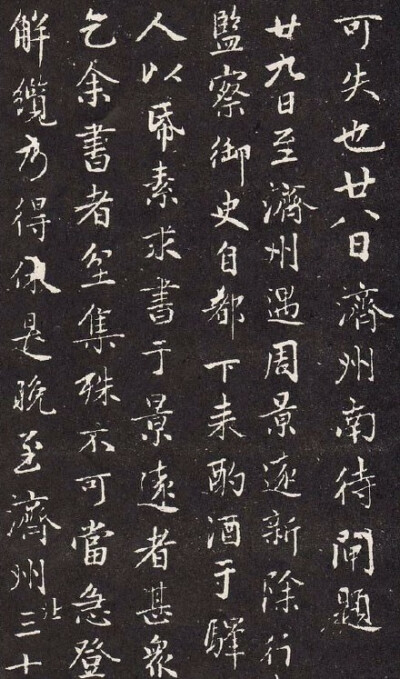 可失也廿八日濟州南待閘題
廿九日至濟州遇周景遠新除行
監察御史自都下来酌酒于驛
人以帋素求書于景遠者甚衆
乞余書者坌集殊不可當急登
解纜乃得休是晚至濟州北三十